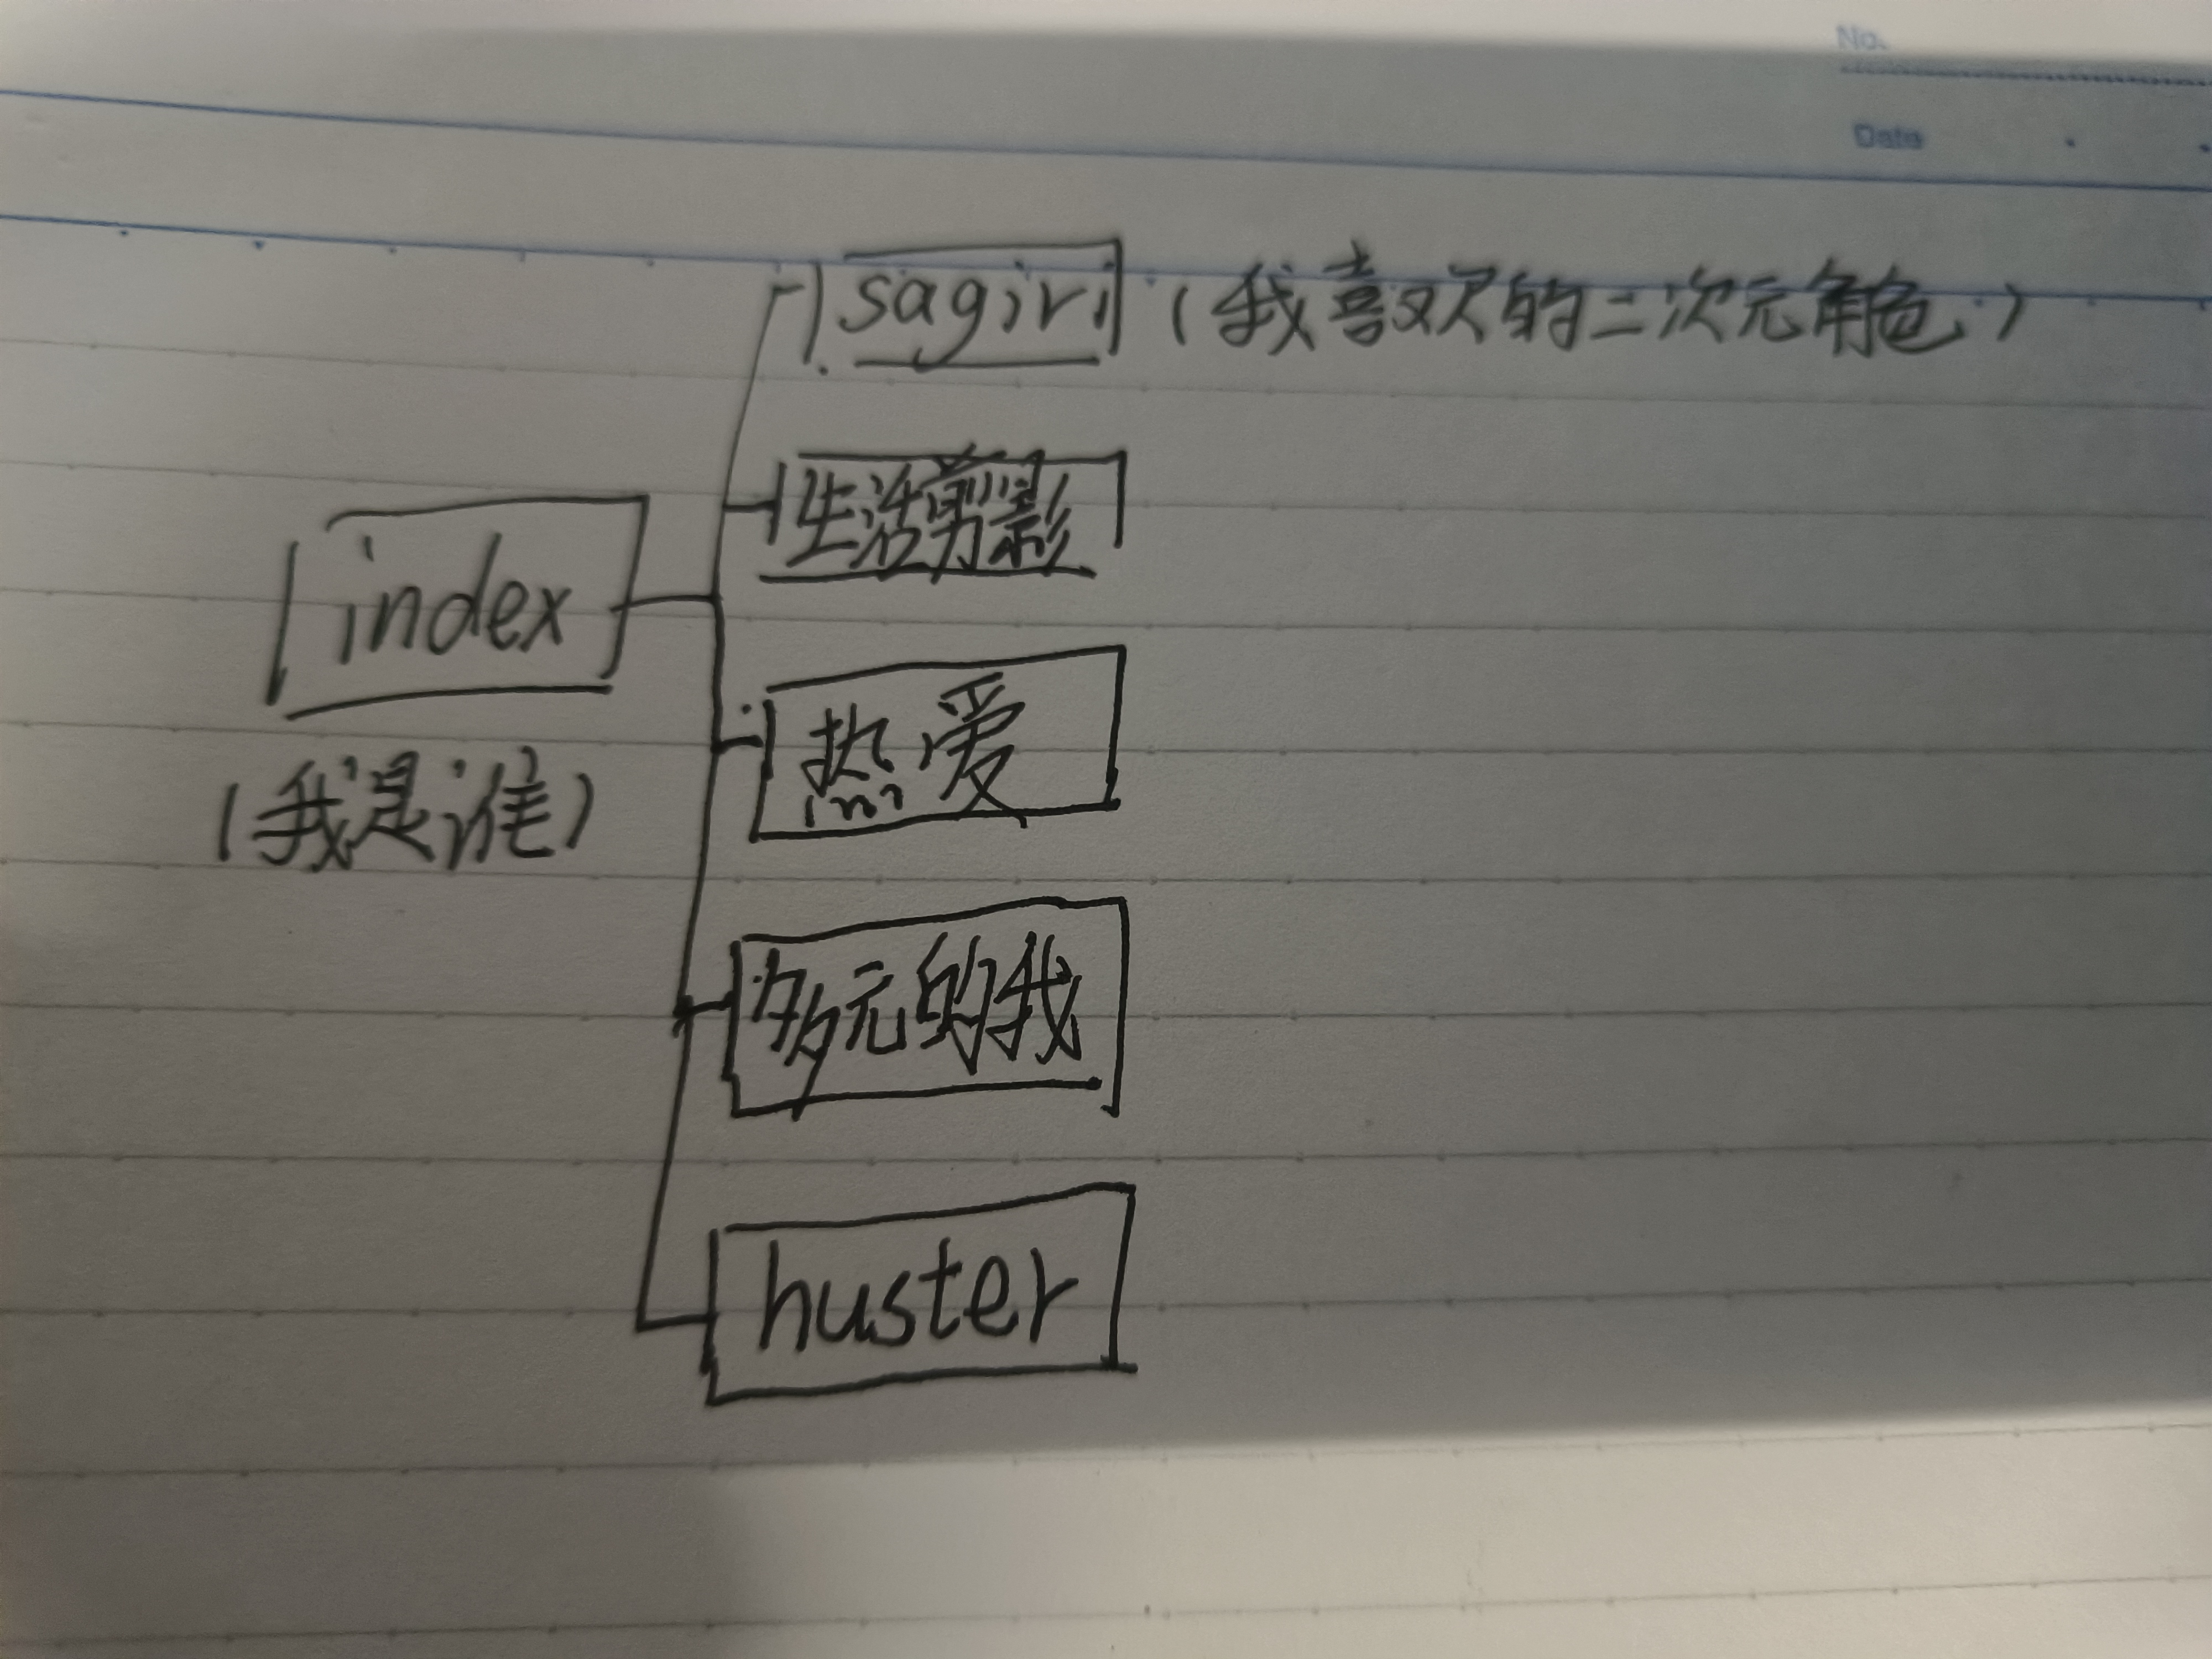 No.
Date
sagiri (我喜欢的二次元角色)
生活剪影
index
热爱
(我是谁)
多元的我
huster